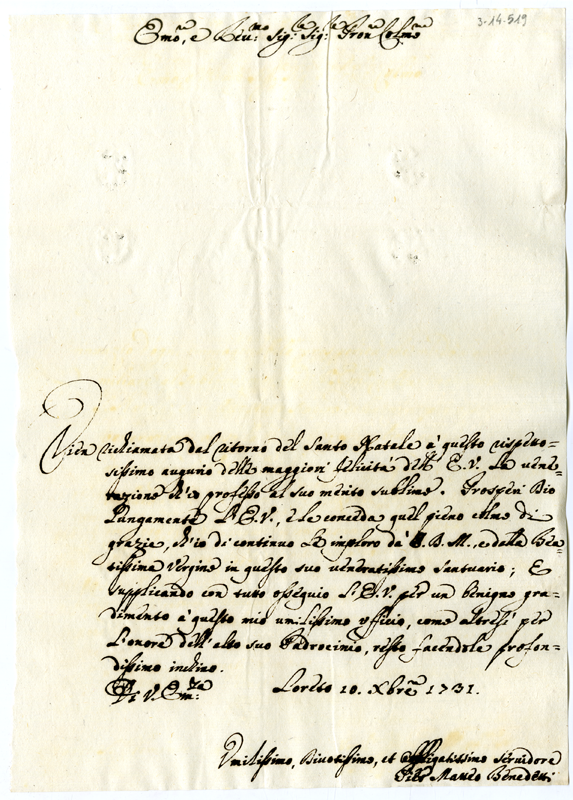 3-14-519
Em̃o, e Reu:mo Sig:r Sig:r Pron Colmo
Vien richiamata dal ritorno del Santo Natale à questo rispetto=
sissimo augurio delle maggiori felicità dell' E. V. la vene=
razione ch'io professo al suo merito sublime. Prosperi Dio
lungamente l'E. V., e le conceda quel pieno colmo di
grazie, ch'io di continuo Le imploro da S. D. M., e dalla Bea=
tissima Vergine in questo suo veneratissimo Santuario; E
supplicando con tutto ossequio l'E. V. per un benigno gra=
dimento à questo mio umilissimo officio, come altresì per
l'onore dell'alto suo Padrocinio, resto facendole profon=
dissimo inchino.
Di V. Em:za Loreto 10. Xbrẽ 1731.
Umilissimo, Divotissimo, et Obbligatissimo Servidore
Matteo Benedetti